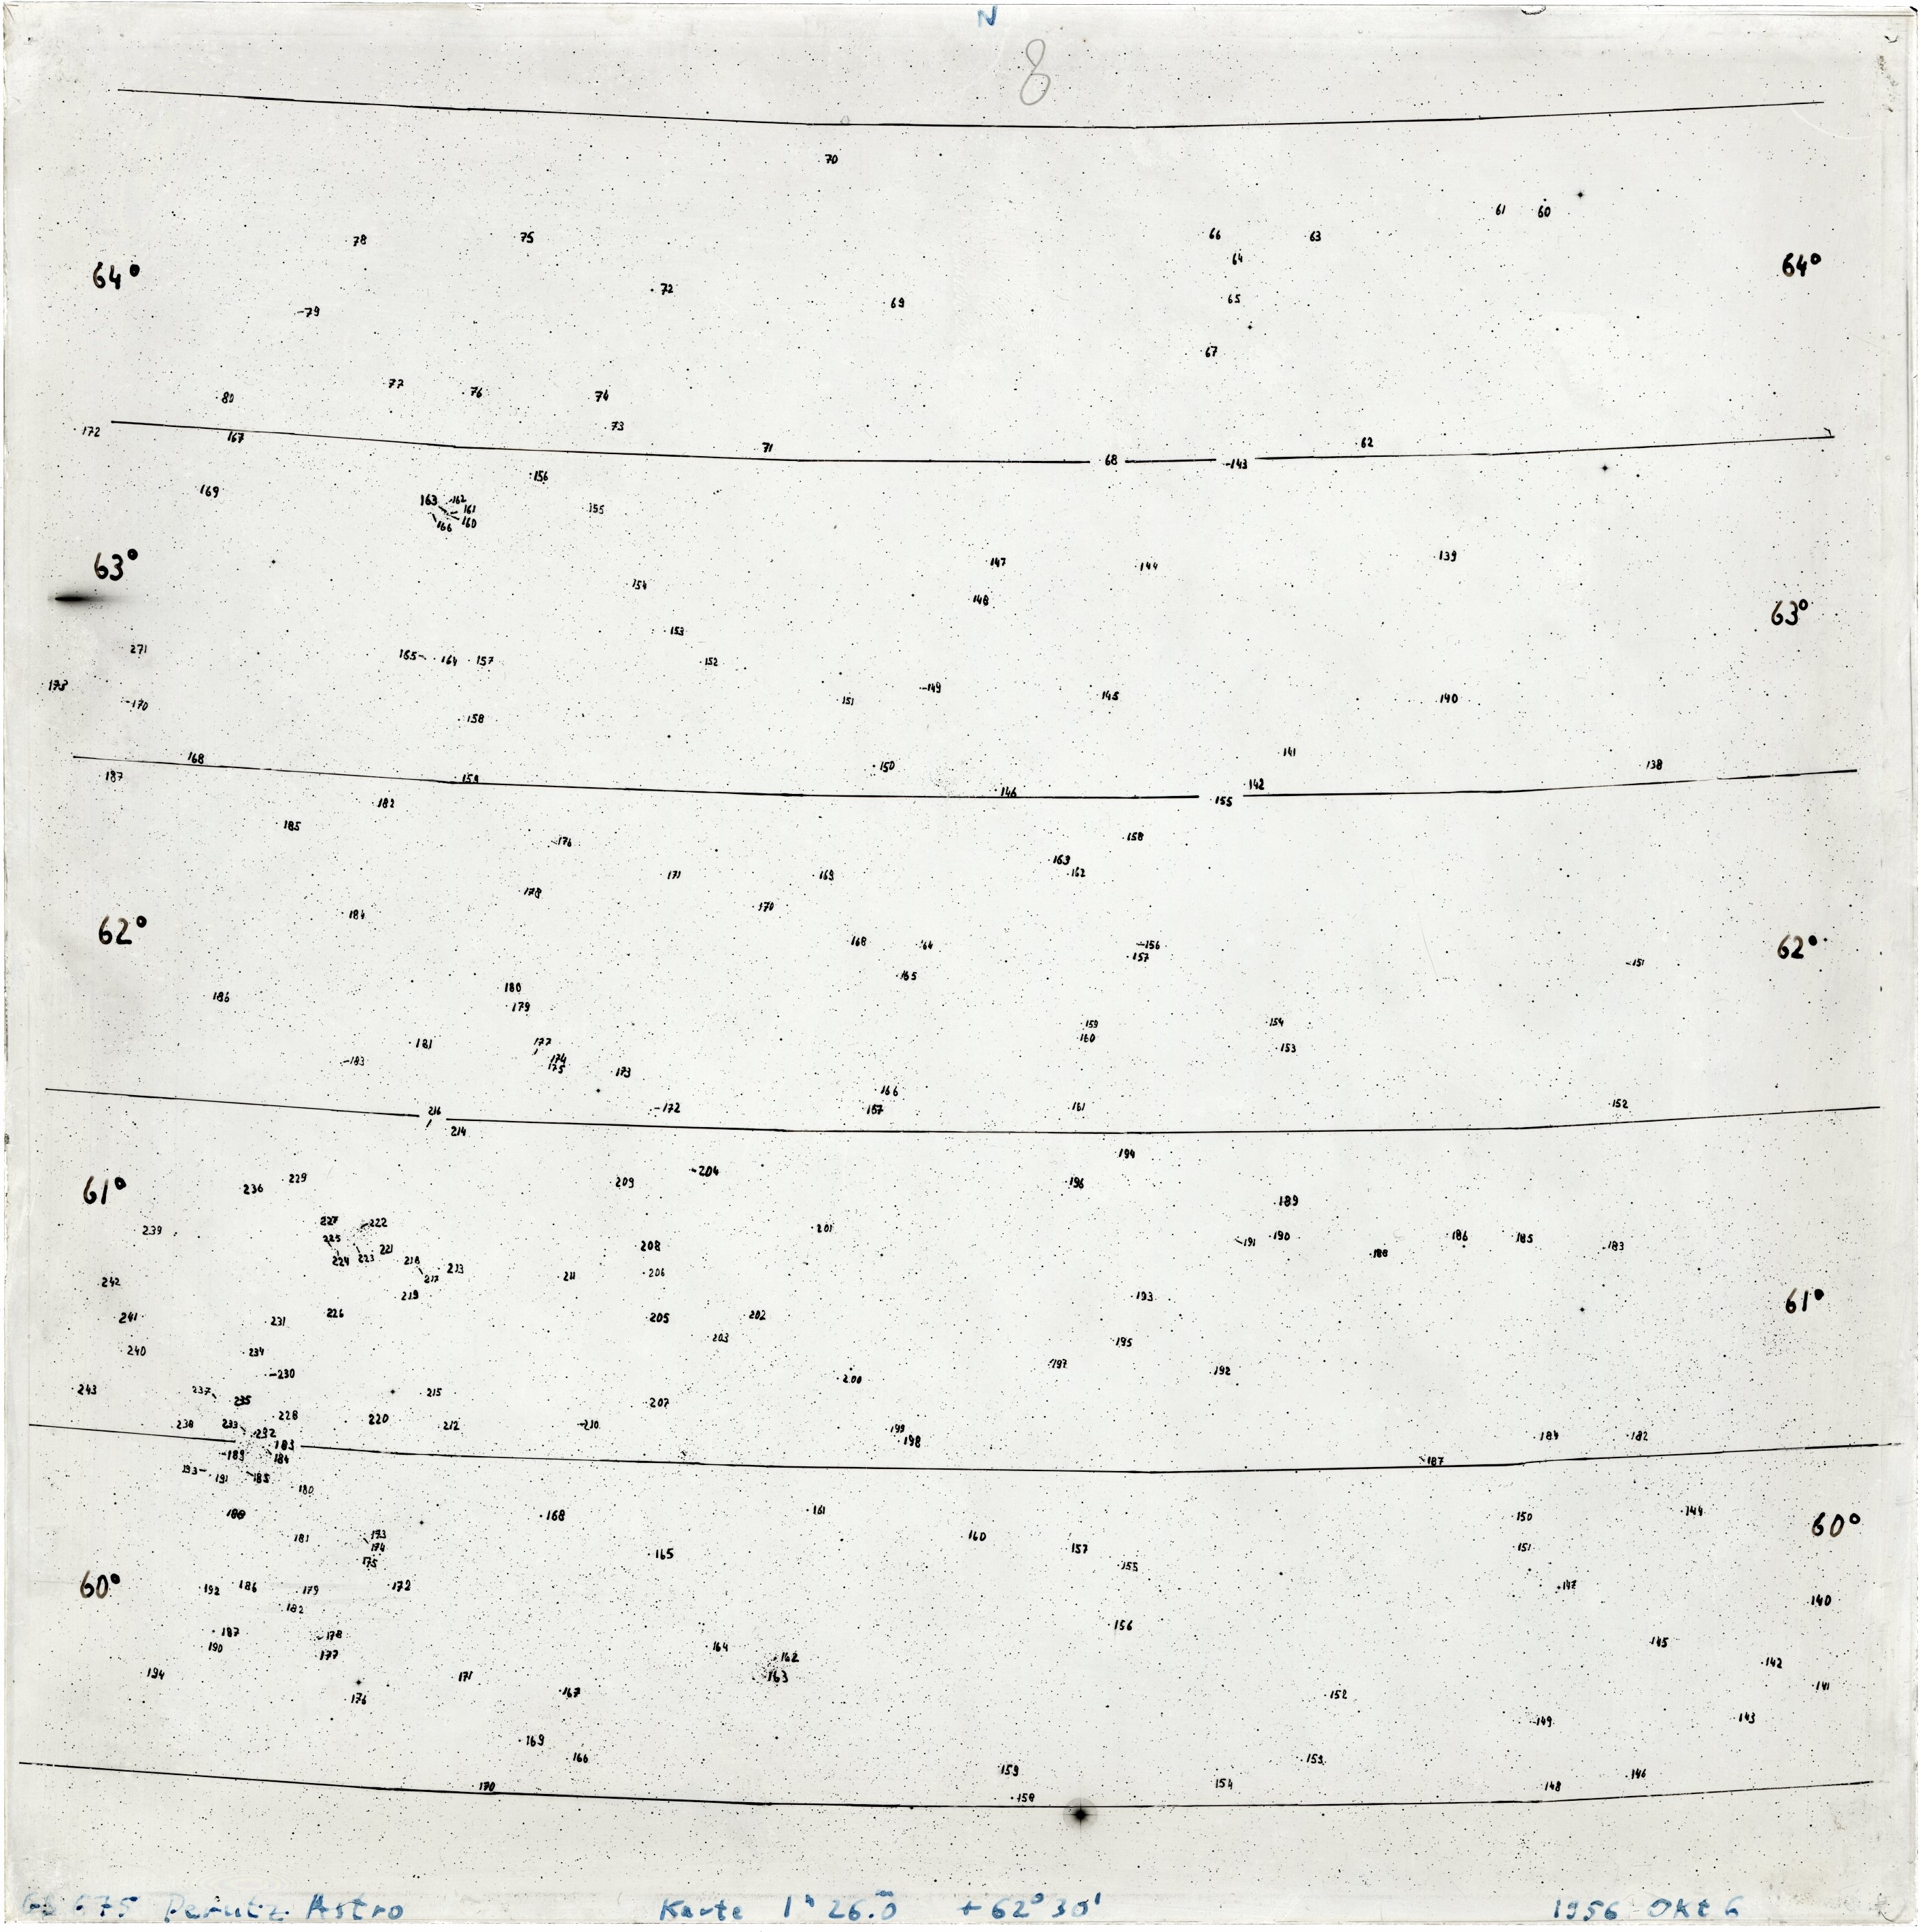 N
8
70
61 60
66 63
78 75
64
64° 64°
72 69 65
79
67
77 76 74
80
73
172 167 71 62
68 143
156
169
163 162
161
155
166 160
139
147 144
63°
154 148
63°
153
271
165 164 157 152
173 149
170 151 145 140
158
141
168 150 138
187 159 142
146
182 155
185 158
176
163
171 169 162
178
170
184
62° 168 164 156 62°
157
165 151
180
186
179
159 154
181 177 160 153
183 174
175 173
166
216 172 167 161 152
214
194
229 204
61° 236 209 196
189
227 222
239 201
225 208 191 190 186 185 183
224 223 221 188
218 213
242 217 211 206
219 193 61°
226
241 231 205 202
203 195
240 234
197 192
230 200
243 237 215
235 207
228
238 233 220 212 210
232 199
183 198 184 182
189 184 187
193 191 185
180
188 168 161 150 144
60°
181 173 160
174 157 151
175 165 155
60° 192 186 179 172 147
182 140
156
187 178
190 164 145
177 162 142
194 171 163
176 167 152 141
149 143
169
166 153
159 146
170 154 148
159
675 Perutz Astro Karte 1h 26.m0 + 62° 30' 1956 Okt 6